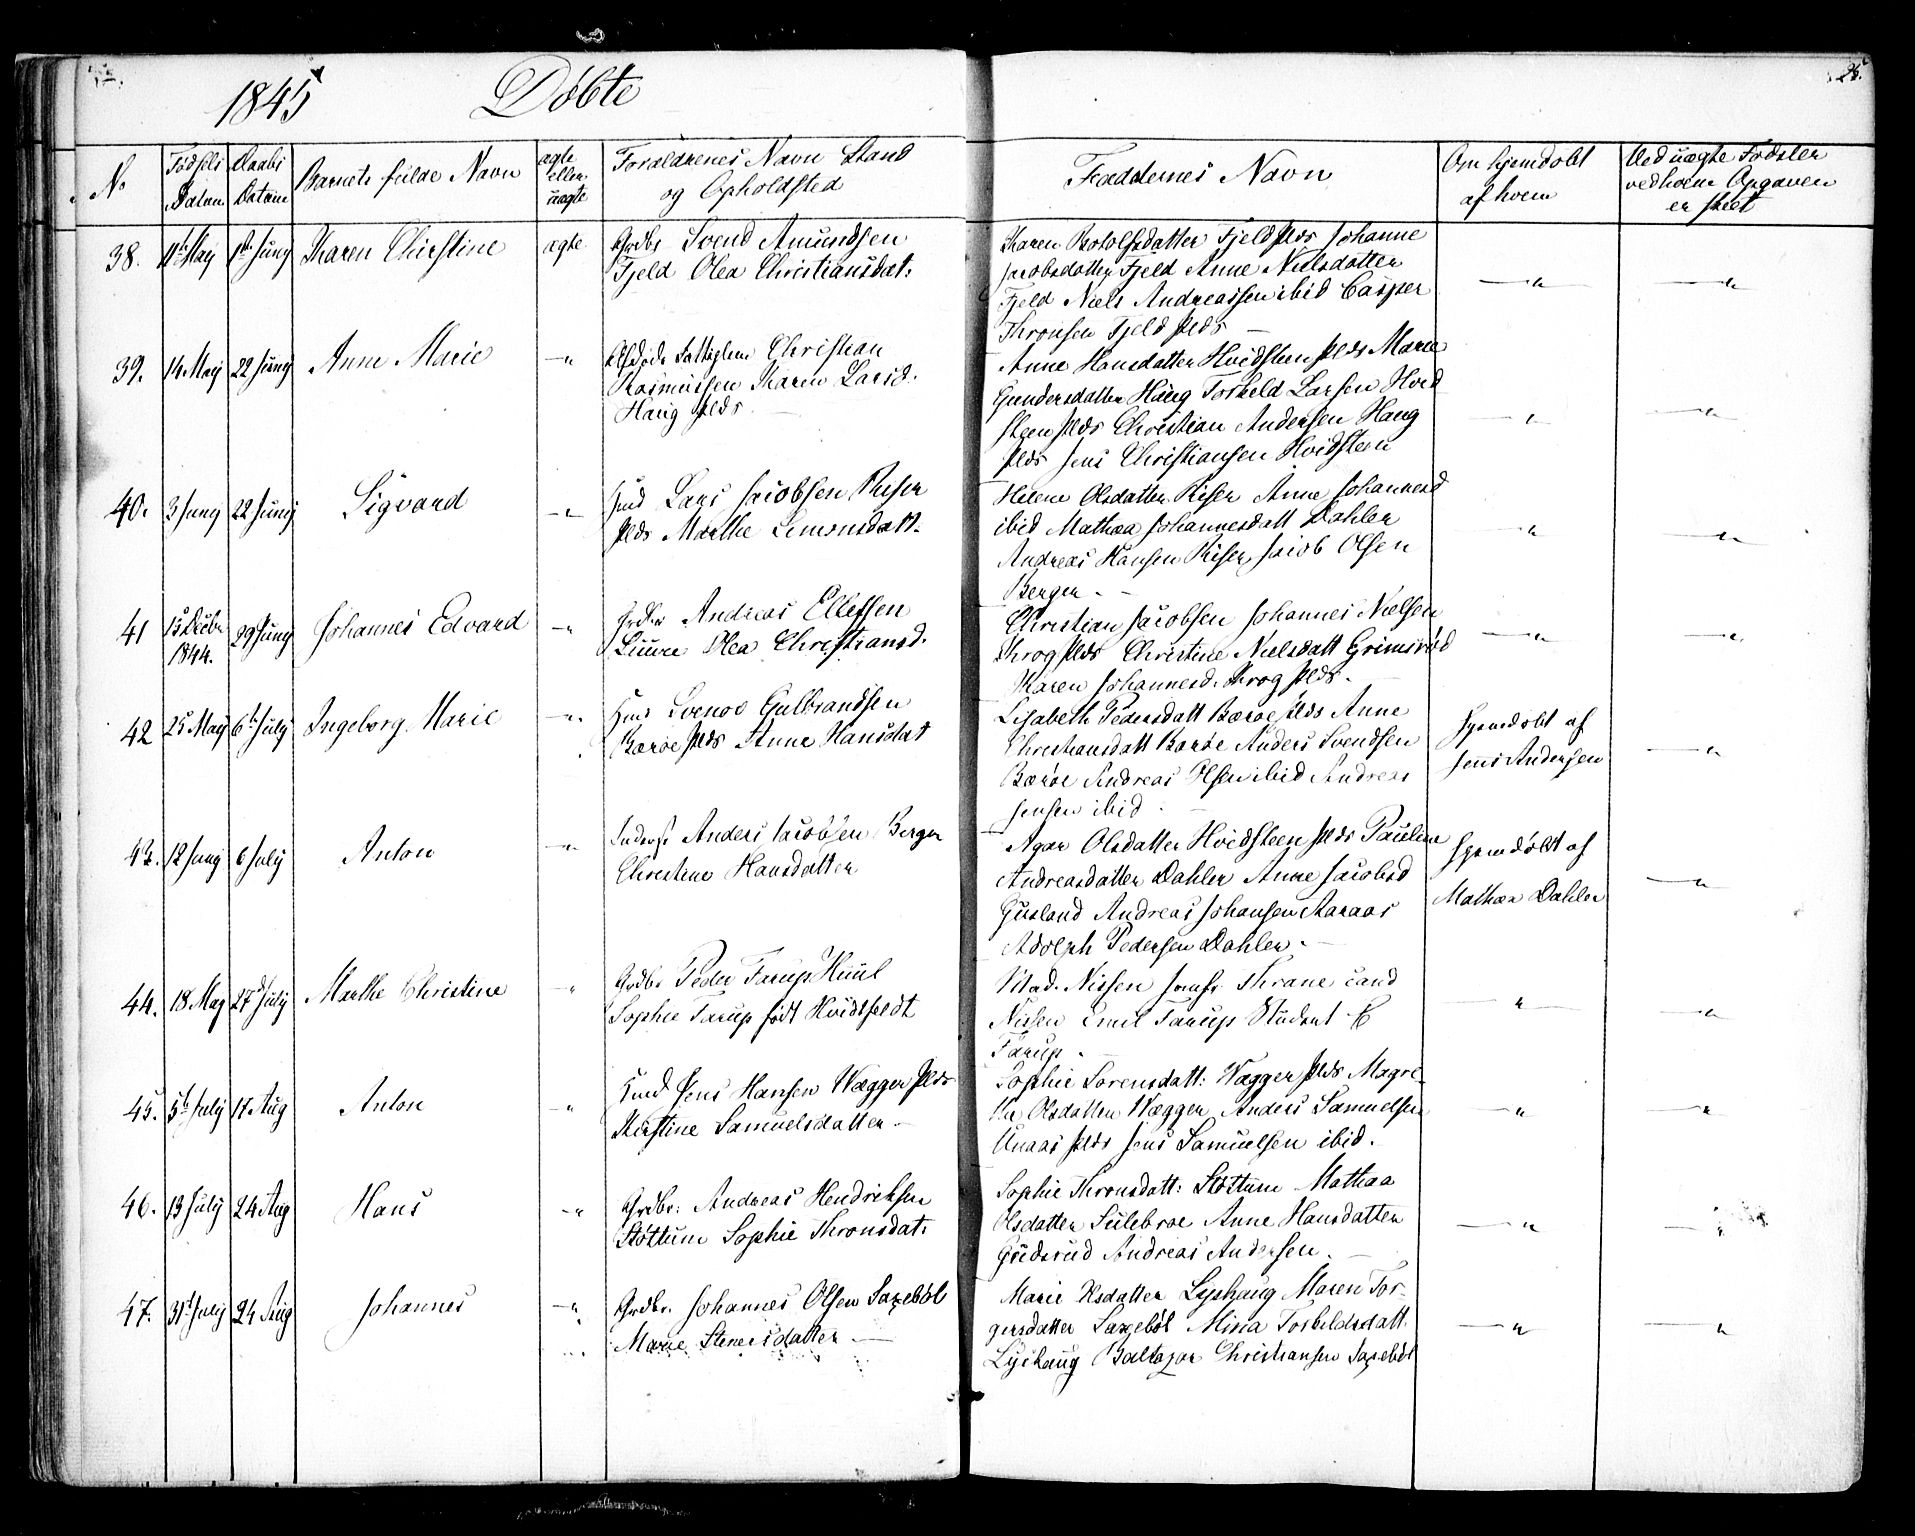 1845 Døbte
26.
No
Fødsels Datum
Daabs Datum
Barnets fulde Navn
ægte eller uægte
Forældrenes Navn Stand og Opholdsted
Faddernes Navn
Om hjemdøbt af hvem
Ved uægte Fødsler ved hvem Opgaven er skeet
38. 11te May 1ste Juny Karen Christine ægte Grdbr Svend Amundsen
Fjeld Olea Christiansdat:
Karen Rotolfsdatter Fjeld plds Johanne
Jacobsdatter Fjeld Anne Nielsdatter
Fjeld Niels Andreassen ibid Casper
Thronsen Fjeld plds —
39. 14 May 22 Juny Anne Marie —"— Christian
Rasmussen Karen Larsd.
Haug plds —
Anne Hansdatter Hvidsteen plds Maren
Gundersdatter Haug Torkeld Larsen Hvid
steen plds Christian Andersen Haug
plds Jens Christiansen Hvidsteen
40. 3 Juny 22 Juny Sigvard —"— Huusd Lars Jacobsen Riser
plds Marthe Simonsdatt.
Helene Olsdatter Riser Anne Johannesd
ibid Mathea Johannesdatt Dahler
Andreas Hansen Riser Jacob Olsen
Berger. —
41 15 Decbr 1844. 29 Juny Johannes Edvard —"— Grdbr Andreas Ellefsen
Olea Christiansd.
Christian Jacobsen Johannes Nielsen
Krog plds Christine Nielsdatt Grimsrød
Karen Johannesd. Krog plds. —
42 25 May 6te July Ingeborg Marie —"— Huusd Svenov Gulbrandsen
Bærøe plds Anne Hansdat
Lisabeth Pedersdatt Bærøe plds Anne
Christiansdatt Bærøe Anders Svendsen
Bærøe Andreas Olsen ibid Andreas
Jensen ibid. —
Hjemdøbt af
Jens Andersen
43. 12 Juny 6 July Anton —"— Inderst Anders Jacobsen Berger
Christine Hansdatter
Agar Olsdatter Hvidsteen plds Pauline
Andreasdatter Dahler Anne Jacobsd
Gusland Andreas Johansen Aaraas
Adolph Pedersen Dahler. —
Hjemdøbt af
Mathea Dahler
44. 18 May 27de July Marthe Christine —"— Grdbr Peder Farup Huul
Sophie Farup født Hvidtfeldt
Mad. Nissen Jomfr. Thrane cand
Nissen Emil Farup Student C
Farup. —
45. 5te July 17 Aug Anton —"— Huusd Jens Hansen Wægger plds
Kirstine Samuelsdatter —
Sophie Sorensdatt: Wægger plds Magre-
the Olsdatter Wægger Anders Samuelsen
Unaas plds Jens Samuelsen ibid.
46. 13 July 24 Aug Hans —"— Grdbr: Andreas Hendriksen
Støttum Sophie Thronsdat:
Sophie Thronsdatt: Støttum Mathea
Olsdatter Sulebroe Anne Hansdatter
Gudsrud Andreas Andersen. —
47. 31te July 24 Aug Johannes —"— Grdbr. Johannes Olsen Saxebøl
Marie Stenersdatter —
Marie Olsdatter Lyshaug Maren Tor-
gersdatter Saxebøl Mina Torkeldsdatt
Lyshaug Baltazar Christiansen Saxebøl